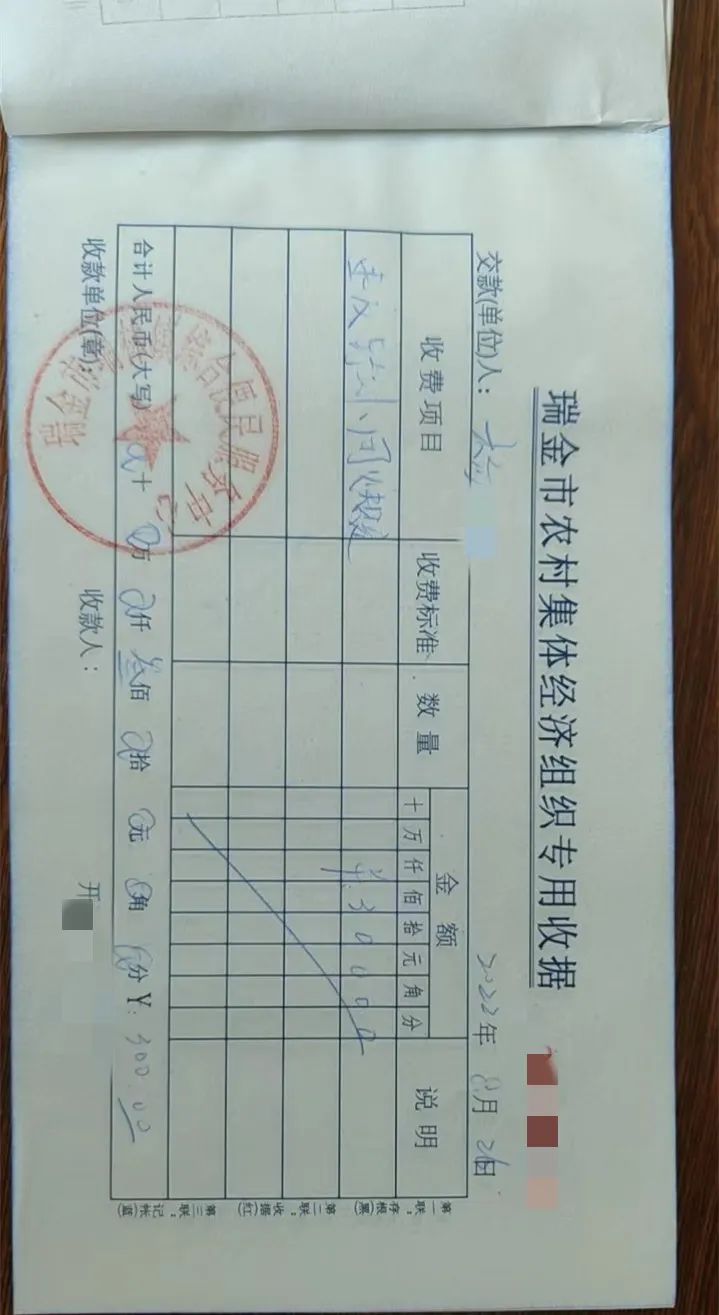 瑞金市农村集体经济组织专用收据
2022年 8月 26日
交款(单位)人:
收费项目 收费标准 数量 金额 说明
十 万 仟 佰 拾 元 角 分
¥ 3 0 0 0 0
合计人民币(大写) 0十 0万 0仟 叁佰 0拾 0元 0角 0分 ¥: 300.00
收款单位(章): 收款人: 开
第一联:存根(黑)
第二联:收据(红)
第三联:记帐(蓝)
瑞金市 综合便民服务中心